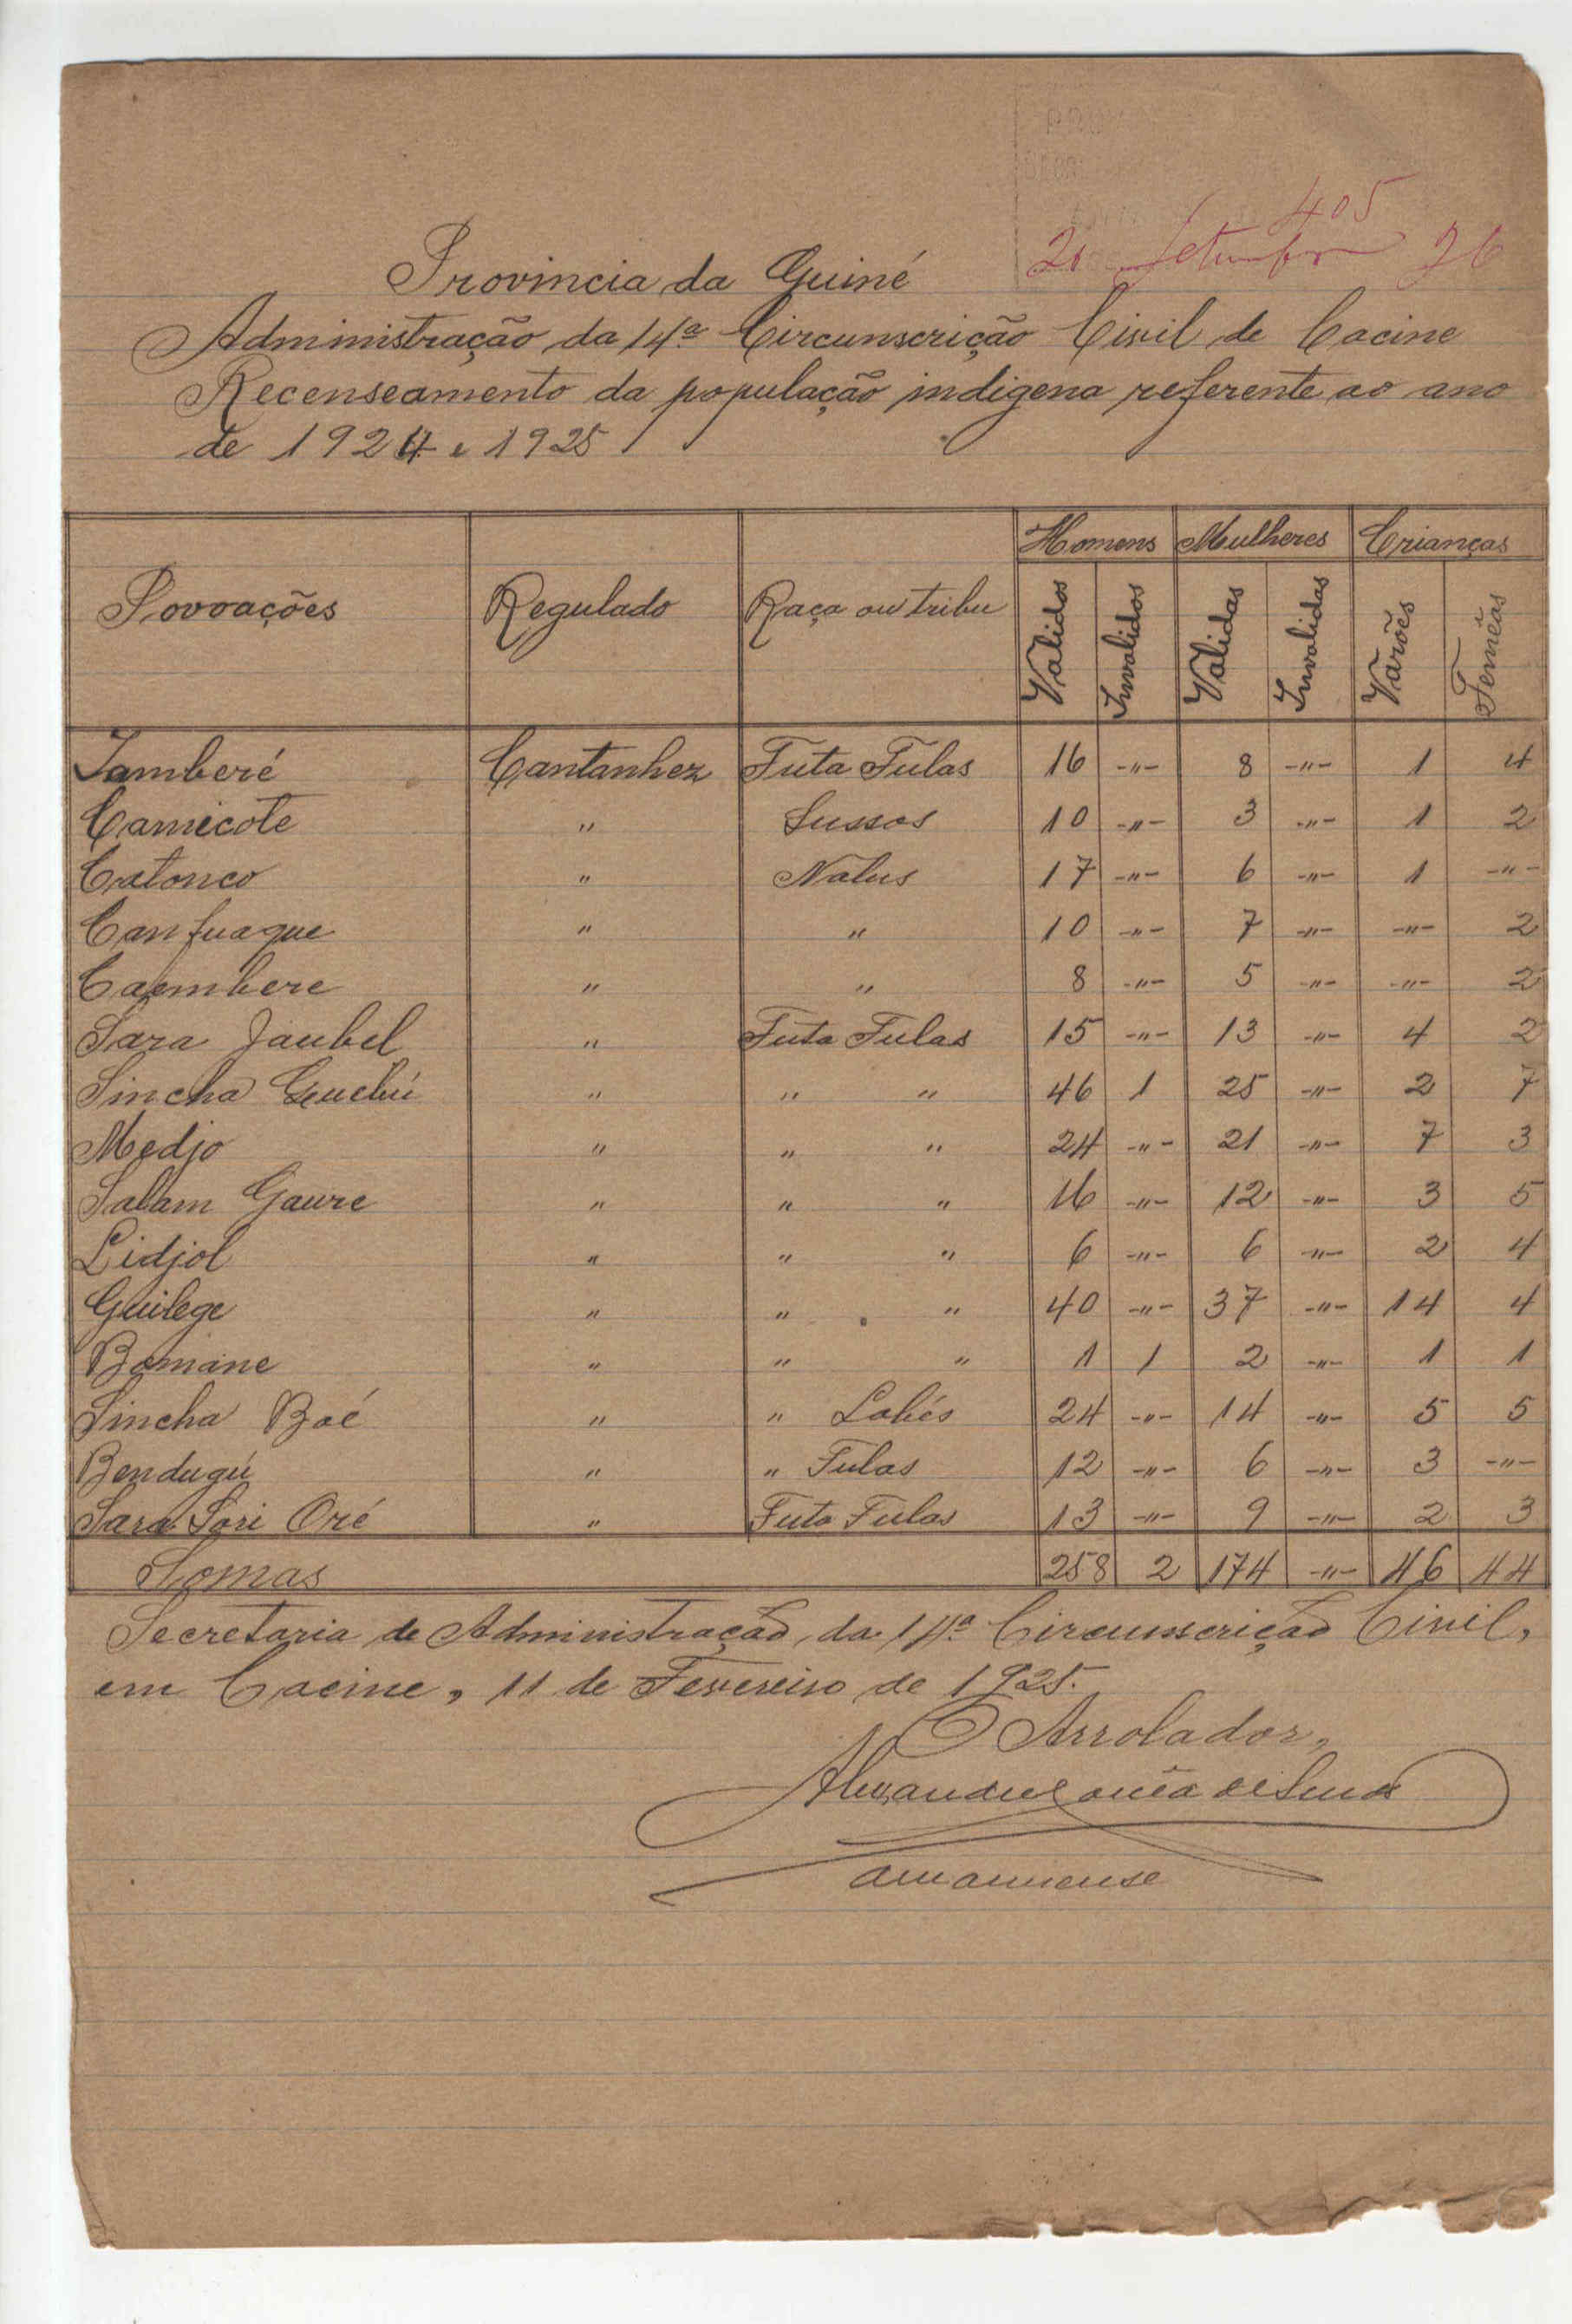 405
20 Setembro 26
Provincia da Guiné
Administração da 14ª Circunscrição Civil de Cacine
Recenseamento da população indigena referente ao ano
de 1924 e 1925
Povoações Regulado Raça ou tribu Homens Mulheres Crianças
Validos Invalidos Validas Invalidas Varões Femeas
Jamberé Cantanhez Futa Fulas 16 -"- 8 -"- 1 4
Camecote " Sussos 10 -"- 3 -"- 1 2
Catonco " Nalus 17 -"- 6 -"- 1 -"-
Canfuaque " " 10 -"- 7 -"- -"- 2
Caembere " " 8 -"- 5 -"- -"- 2
Sara Jaubel " Futa Fulas 15 -"- 13 -"- 4 2
Sincha Guebú " " " 46 1 25 -"- 2 7
Medjo " " " 24 -"- 21 -"- 7 3
Salam Gaure " " " 16 -"- 12 -"- 3 5
Lidjol " " " 6 -"- 6 -"- 2 4
Guilege " " " 40 -"- 37 -"- 14 4
Bomane " " " 1 1 2 -"- 1 1
Sincha Boé " " Lobés 24 -"- 14 -"- 5 5
Bendugú " " Fulas 12 -"- 6 -"- 3 -"-
Sara Sori Oré " Futa Fulas 13 -"- 9 -"- 2 3
Somas 258 2 174 -"- 46 44
Secretaria de Administração, da 14ª Circunscrição Civil,
em Cacine, 11 de Fevereiro de 1925.
O Arrolador,
amanuense